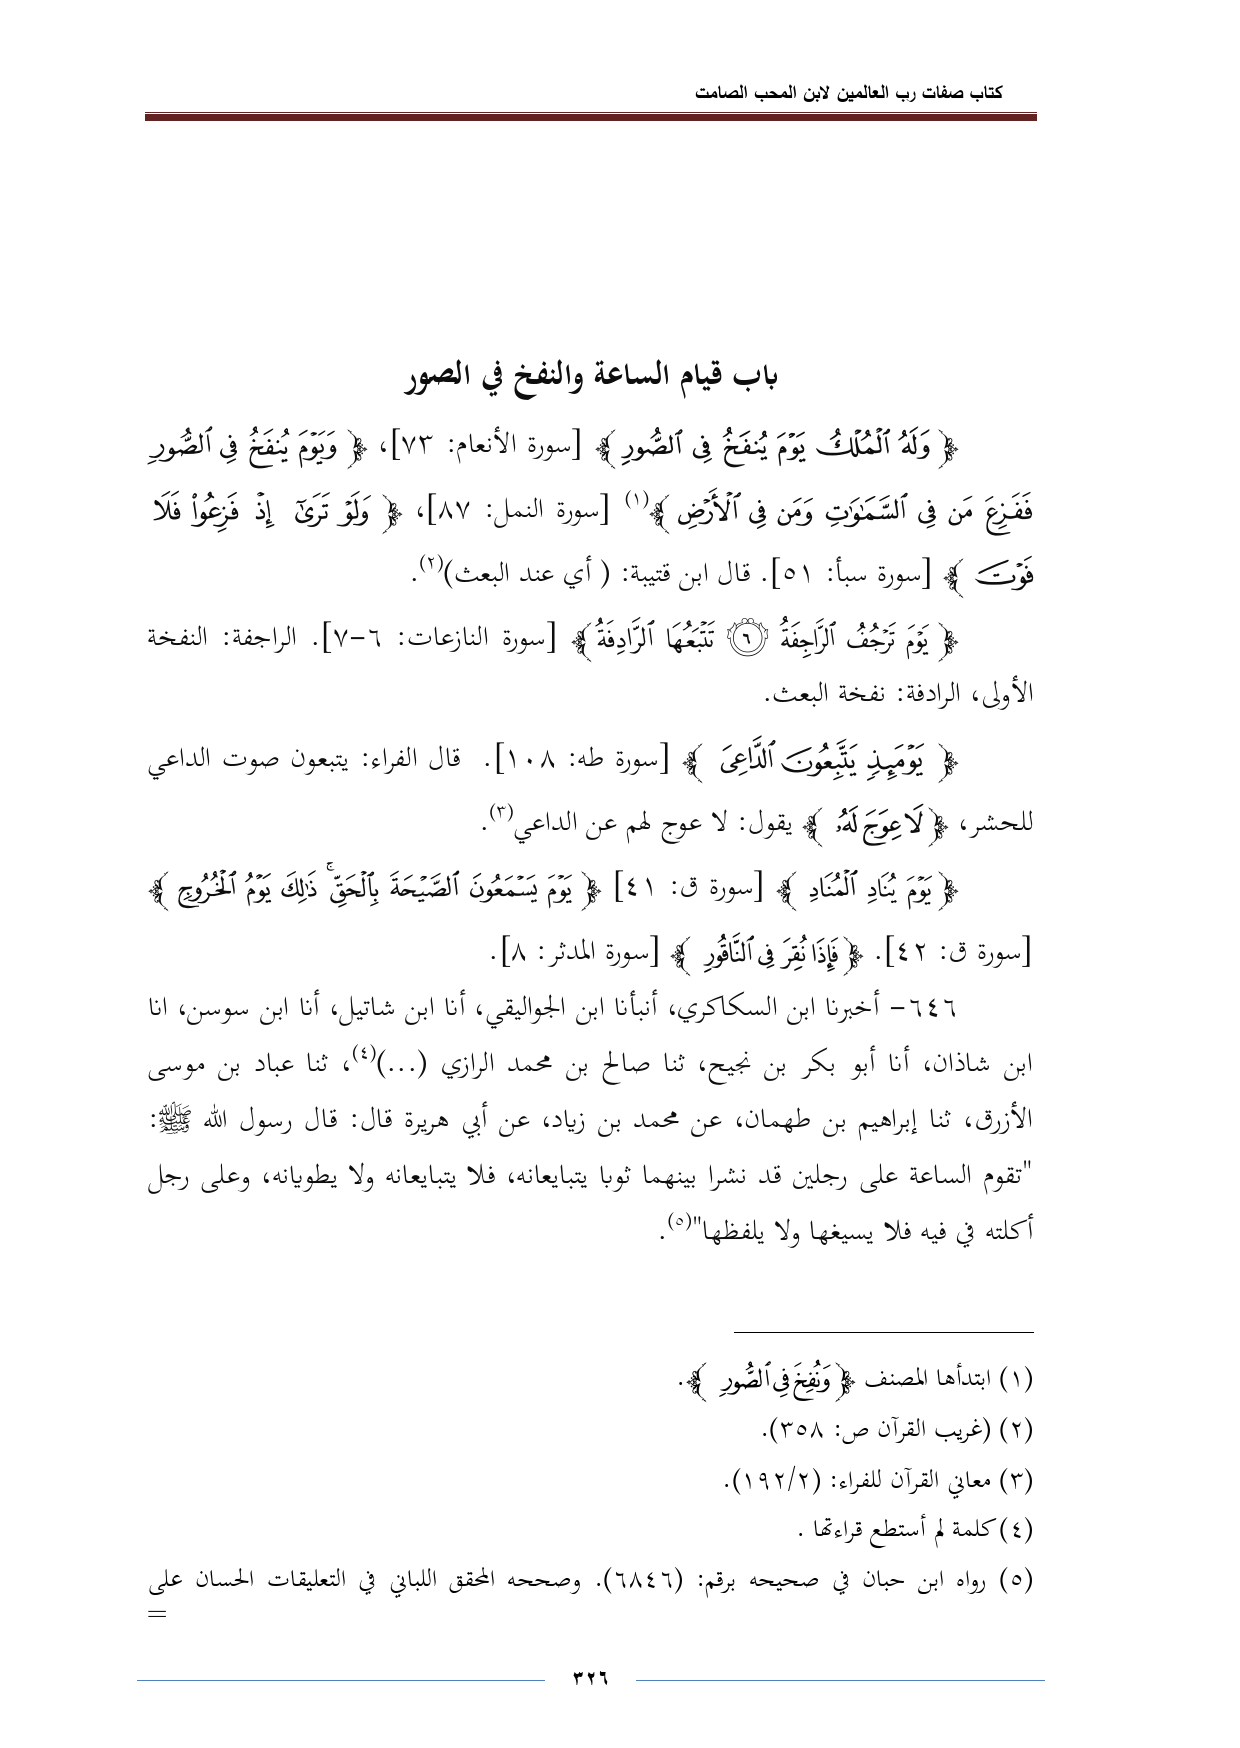 كتاب صفات رب العالمين لابن المحب الصامت
باب قيام الساعة والنفخ في الصور
﴿ وَلَهُ ٱلْمُلْكُ يَوْمَ يُنفَخُ فِى ٱلصُّورِ ﴾ [سورة الأنعام: ٧٣]، ﴿ وَيَوْمَ يُنفَخُ فِى ٱلصُّورِ
فَفَزِعَ مَن فِى ٱلسَّمَٰوَٰتِ وَمَن فِى ٱلْأَرْضِ ﴾(١) [سورة النمل: ٨٧]، ﴿ وَلَوْ تَرَىٰٓ إِذْ فَزِعُوا۟ فَلَا
فَوْتَ ﴾ [سورة سبأ: ٥١]. قال ابن قتيبة: ( أي عند البعث)(٢).
﴿ يَوْمَ تَرْجُفُ ٱلرَّاجِفَةُ ۝٦ تَتْبَعُهَا ٱلرَّادِفَةُ ﴾ [سورة النازعات: ٦-٧]. الراجفة: النفخة
الأولى، الرادفة: نفخة البعث.
﴿ يَوْمَئِذٍ يَتَّبِعُونَ ٱلدَّاعِىَ ﴾ [سورة طه: ١٠٨]. قال الفراء: يتبعون صوت الداعي
للحشر، ﴿ لَا عِوَجَ لَهُۥ ﴾ يقول: لا عوج لهم عن الداعي(٣).
﴿ يَوْمَ يُنَادِ ٱلْمُنَادِ ﴾ [سورة ق: ٤١] ﴿ يَوْمَ يَسْمَعُونَ ٱلصَّيْحَةَ بِٱلْحَقِّ ۚ ذَٰلِكَ يَوْمُ ٱلْخُرُوجِ ﴾
[سورة ق: ٤٢]. ﴿ فَإِذَا نُقِرَ فِى ٱلنَّاقُورِ ﴾ [سورة المدثر: ٨].
٦٤٦- أخبرنا ابن السكاكري، أنبأنا ابن الجواليقي، أنا ابن شاتيل، أنا ابن سوسن، انا
ابن شاذان، أنا أبو بكر بن نجيح، ثنا صالح بن محمد الرازي (...)(٤)، ثنا عباد بن موسى
الأزرق، ثنا إبراهيم بن طهمان، عن محمد بن زياد، عن أبي هريرة قال: قال رسول الله ﷺ:
"تقوم الساعة على رجلين قد نشرا بينهما ثوبا يتبايعانه، فلا يتبايعانه ولا يطويانه، وعلى رجل
أكلته في فيه فلا يسيغها ولا يلفظها"(٥).
(١) ابتدأها المصنف ﴿ وَنُفِخَ فِى ٱلصُّورِ ﴾.
(٢) (غريب القرآن ص: ٣٥٨).
(٣) معاني القرآن للفراء: (١٩٢/٢).
(٤) كلمة لم أستطع قراءتها .
(٥) رواه ابن حبان في صحيحه برقم: (٦٨٤٦). وصححه المحقق اللباني في التعليقات الحسان على
=
٣٢٦